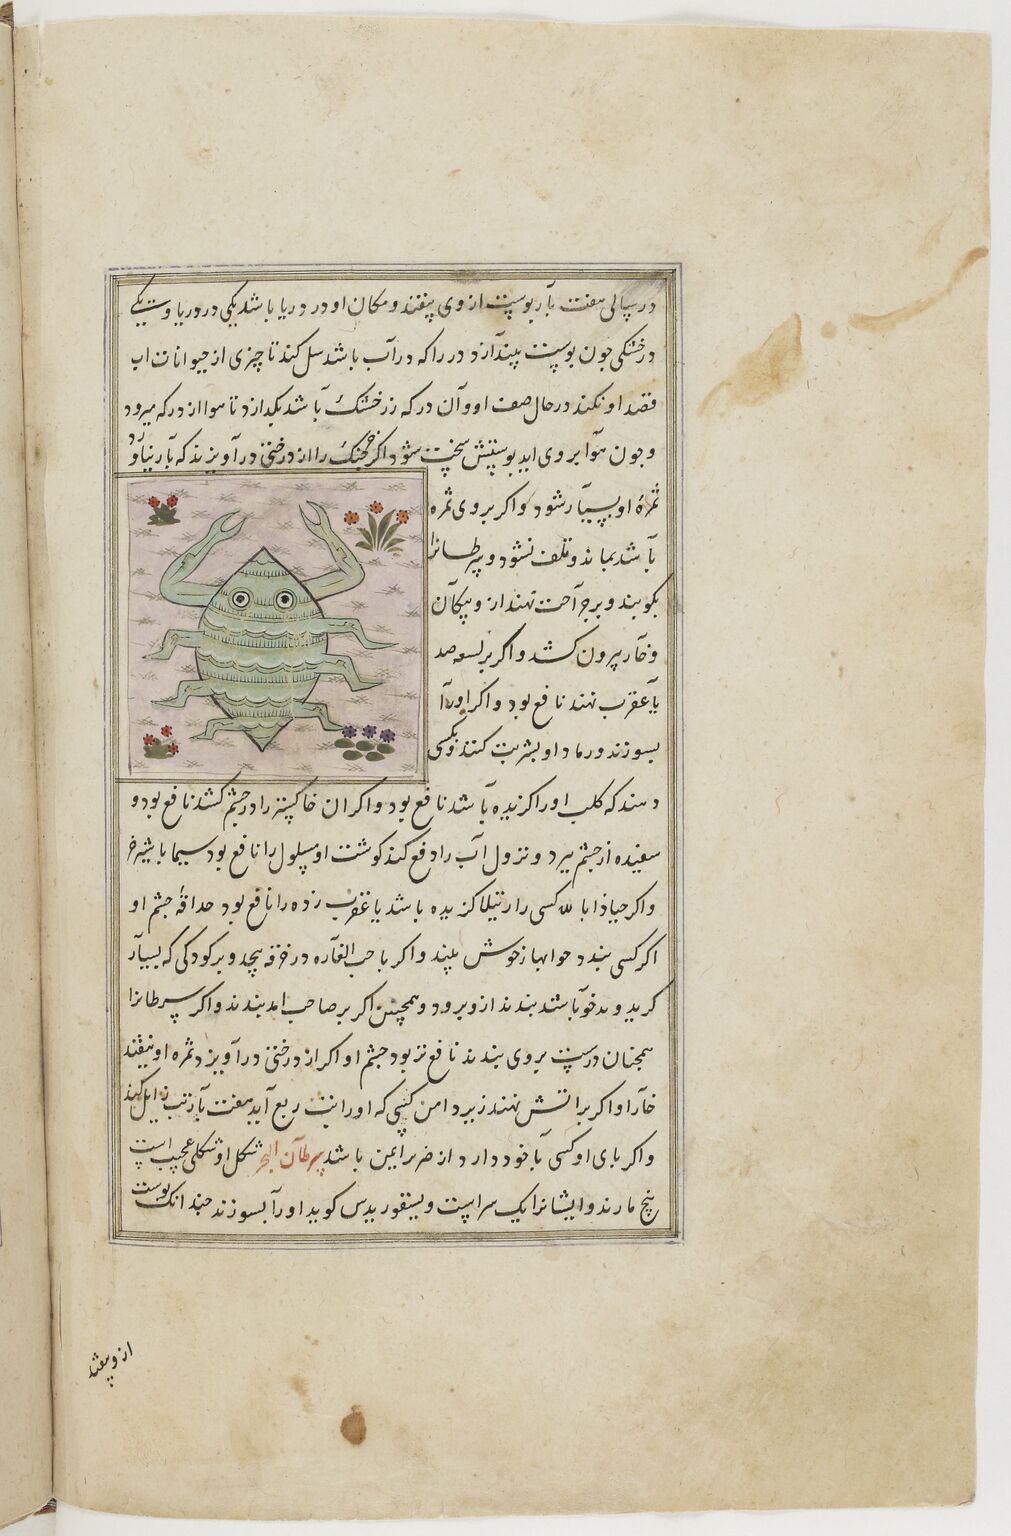 در سالی هفت بار پوست از وی بیفتد و مکان او در دریا باشد یکی در دریاوست یکی
در خشکی چون پوست بیندازد در را که در آب باشد سل کند تا چیزی از حیوانات اب
قصد او نکند در حال صعف او و آن در که در خشک باشد بگذارد تا هوا از در که میرود
و چون هوا بر وی اید پوستش سخت شود اکر خرچنک را از درختی در آویزند که بار نیاورد
ثمره او بسیار شود و اکر بر وی ثمره
باشد بماند و تلف نشود و سرطانرا
بکوبند و بر جراحت نهند از و پیکان
و خار بیرون کشد و اکر بر لسعه
یا عقرب نهند نافع بود و اکر اورا
بسوزند و رماد او بشربت کنند و بکسی
دهند که کلب او را کزیده باشد نافع بود و اکر ان خاکستر را در چشم کشند نافع بود و
سفیده از چشم ببرد و نزول آب را دفع کند کوشت او مسلول را نافع بود سیما با شیر خر
و اکر عیاذا بالله کسی را رتیلا کزیده باشد یا عقرب زده را نافع بود حداقه چشم او
اکر کسی بندد خوابها خوش بیند و اکر با حب الغاره در خرقه پیچد و بر کودکی که بسیار
کرید و بدخو باشد بندند از و برود و همچنین اکر بر صاحب بندند و اکر سرطانرا
همچنان درست بر وی بندند نافع تر بود چشم او اکر از درختی در آویزد ثمره او نیفتد
خار او اکر بر اتش نهند زیر دامن کسی که او را تب ربع آید هفت بار تب زایل کند
و اکر بای او کسی با خود دارد از ضرر ایمن باشد سرطان البحر شکل او شکلی عجیب است
پنج مارند و ایشانرا یک سر است و بسقوریدس کوید او را بسوزند چندانک پوست
از و بیفتد